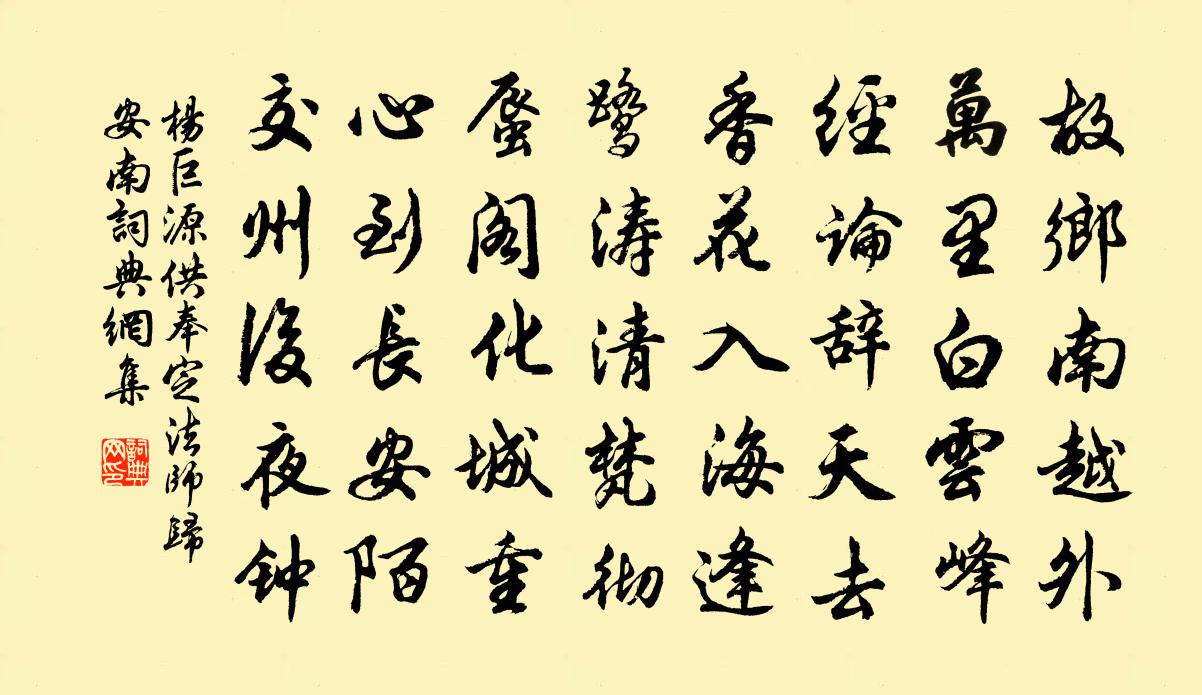 故鄉南越外
萬里白雲峰
經論辞天去
香花入海逢
鹭濤清梵彻
蜃阁化城重
心到長安陌
交州後夜钟
楊巨源供奉定法師歸
安南詞典網集
詞典
网印